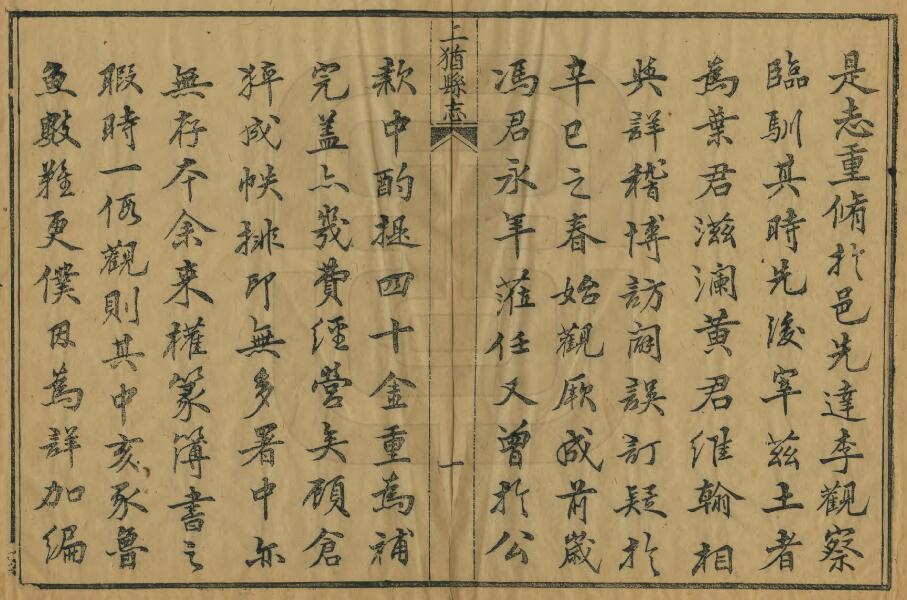 是志重脩於邑先達李觀察
臨馴其時先後宰茲土者
為葉君滋瀾黄君維翰相
與詳稽博訪闕誤訂疑於
辛巳之春始觀厥成前歲
馮君永年蒞任又曾於公
上猶縣志
一
款中酌提四十金重為補
完盖亦幾費經營矣顧倉
猝成帙排印無多署中亦
無存本余来權篆簿書之
暇時一偶觀則其中亥豕魯
魚數難更僕因為詳加編